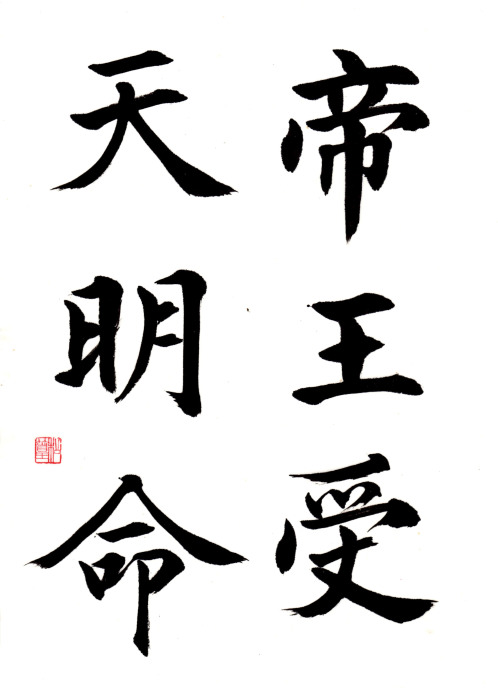 帝王受
天明命